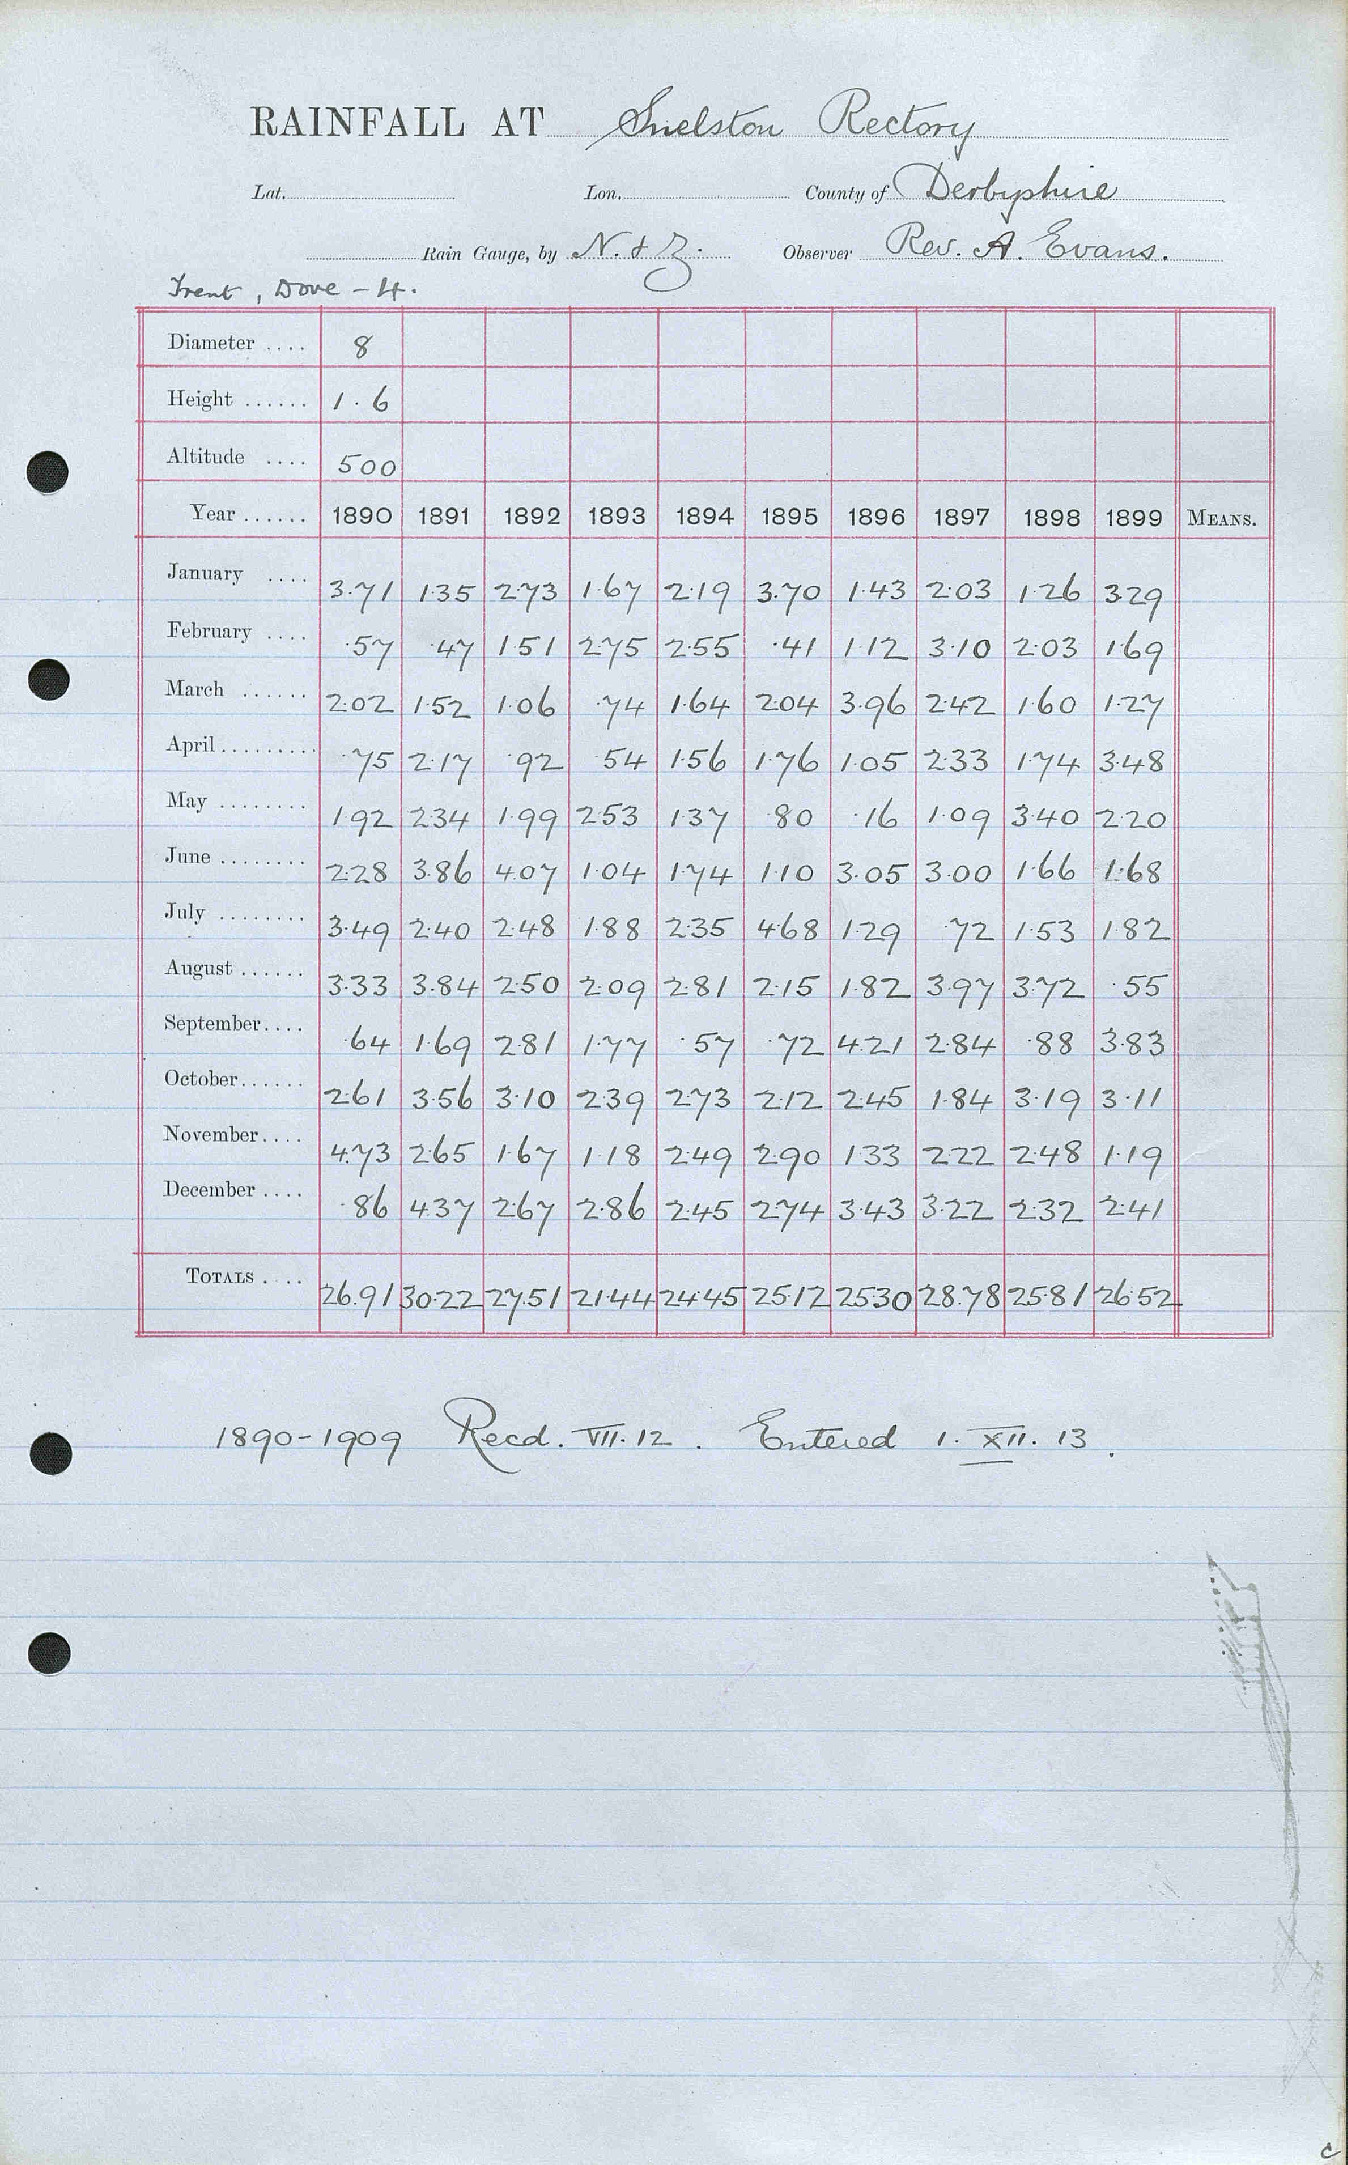 RAINFALL AT Snelston Rectory
Lat. Lon. County of Derbyshire
Rain Gauge, by N. & Z. Observer Rev. A. Evans.
Trent, Dove - 4.
Diameter .... 8
Height ...... 1.6
Altitude .... 500
Year ...... 1890 1891 1892 1893 1894 1895 1896 1897 1898 1899 MEANS.
January .... 3.71 1.35 2.73 1.67 2.19 3.70 1.43 2.03 1.26 3.29
February .... .57 .47 1.51 2.75 2.55 .41 1.12 3.10 2.03 1.69
March ...... 2.02 1.52 1.06 .74 1.64 2.04 3.96 2.42 1.60 1.27
April ......... .75 2.17 .92 .54 1.56 1.76 1.05 2.33 1.74 3.48
May ........ 1.92 2.34 1.99 2.53 1.37 .80 .16 1.09 3.40 2.20
June ........ 2.28 3.86 4.07 1.04 1.74 1.10 3.05 3.00 1.66 1.68
July ........ 3.49 2.40 2.48 1.88 2.35 4.68 1.29 .72 1.53 1.82
August ...... 3.33 3.84 2.50 2.09 2.81 2.15 1.82 3.97 3.72 .55
September .... .64 1.69 2.81 1.77 .57 .72 4.21 2.84 .88 3.83
October ...... 2.61 3.56 3.10 2.39 2.73 2.12 2.45 1.84 3.19 3.11
November .... 4.73 2.65 1.67 1.18 2.49 2.90 1.33 2.22 2.48 1.19
December .... .86 4.37 2.67 2.86 2.45 2.74 3.43 3.22 2.32 2.41
TOTALS .... 26.91 30.22 27.51 21.44 24.45 25.12 25.30 28.78 25.81 26.52
1890-1909 Recd. VII.12. Entered 1. XII. 13.
c